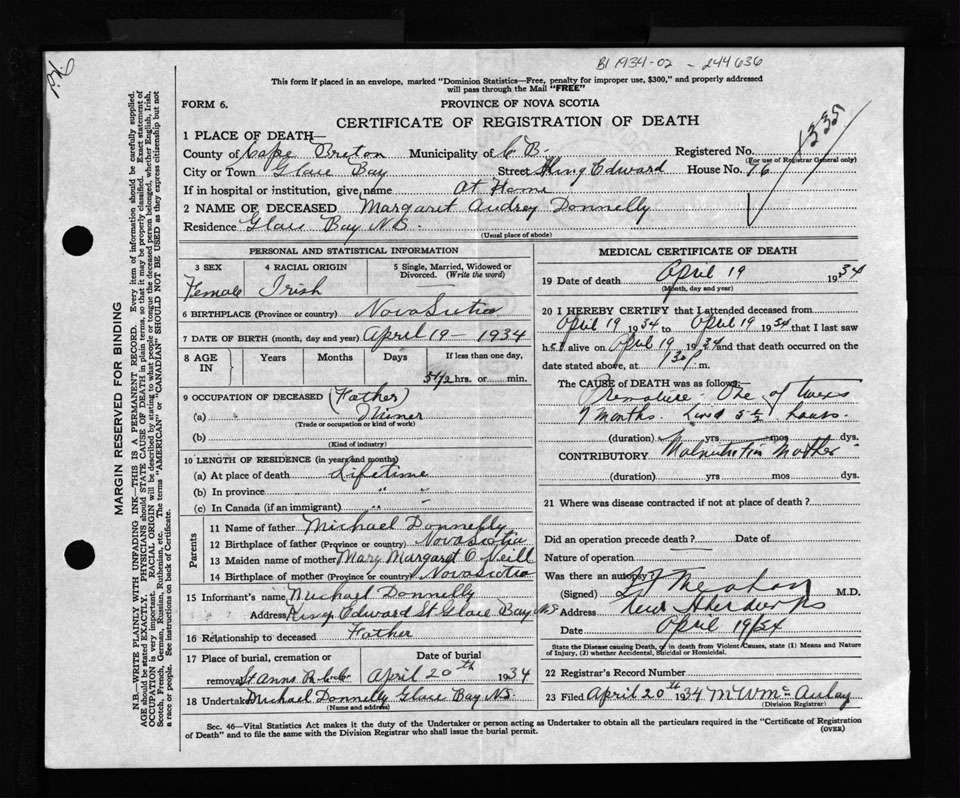 B1 1934-02 - 244636
This form if placed in an envelope, marked "Dominion Statistics—Free, penalty for improper use, $300," and properly addressed
will pass through the Mail "FREE"
FORM 6.
PROVINCE OF NOVA SCOTIA
CERTIFICATE OF REGISTRATION OF DEATH
1335
1 PLACE OF DEATH—
County of Cape Breton Municipality of C B. Registered No.
(For use of Registrar General only)
City or Town Glace Bay Street King Edward House No. 76
If in hospital or institution, give name At Home
2 NAME OF DECEASED Margaret Audrey Donnelly
Residence Glace Bay N.S.
(Usual place of abode)
PERSONAL AND STATISTICAL INFORMATION
3 SEX 4 RACIAL ORIGIN 5 Single, Married, Widowed or Divorced. (Write the word)
Female Irish
6 BIRTHPLACE (Province or country) Nova Scotia
7 DATE OF BIRTH (month, day and year) April 19 - 1934
8 AGE IN Years Months Days If less than one day,
5 1/2 hrs. or min.
9 OCCUPATION OF DECEASED (Father)
(a) Miner
(Trade or occupation or kind of work)
(b)
(Kind of industry)
10 LENGTH OF RESIDENCE (in years and months)
(a) At place of death Lifetime
(b) In province " "
(c) In Canada (if an immigrant) "
Parents
11 Name of father Michael Donnelly
12 Birthplace of father (Province or country) Nova Scotia
13 Maiden name of mother Mary Margaret O Neill
14 Birthplace of mother (Province or country) Nova Scotia
15 Informant's name Michael Donnelly
Address King Edward St Glace Bay N.S
16 Relationship to deceased Father
17 Place of burial, cremation or removal Date of burial
St Anns April 20th 1934
18 Undertaker Michael Donnelly Glace Bay N.S.
(Name and address)
MEDICAL CERTIFICATE OF DEATH
19 Date of death April 19 1934
(Month, day and year)
20 I HEREBY CERTIFY that I attended deceased from
April 19 1934 to April 19 1934 that I last saw
her alive on April 19 1934 and that death occurred on the
date stated above, at 130 P m.
The CAUSE of DEATH was as follows:
Premature - One of twins
7 months. Lived 5 1/2 hours.
(duration) yrs mos dys.
CONTRIBUTORY Malnutrition Mother
(duration) yrs mos dys.
21 Where was disease contracted if not at place of death?
Did an operation precede death? Date of
Nature of operation
Was there an autopsy?
(Signed) M.D.
Address New Aberdeen
Date April 19/34
State the Disease causing Death, or in death from Violent Causes, state (1) Means and
Nature of Injury, (2) whether Accidental, Suicidal or Homicidal.
22 Registrar's Record Number
23 Filed April 20th 1934 M W McAulay
(Division Registrar)
Sec. 46—Vital Statistics Act makes it the duty of the Undertaker or person acting as Undertaker to obtain all the particulars required in the "Certificate of Registration
of Death" and to file the same with the Division Registrar who shall issue the burial permit.
(OVER)
MARGIN RESERVED FOR BINDING
N.B.—WRITE PLAINLY WITH UNFADING INK—THIS IS A PERMANENT RECORD. Every item of information should be carefully supplied.
AGE should be stated EXACTLY. PHYSICIANS should STATE CAUSE OF DEATH in plain terms, so that it may be properly classified. Exact statement of
OCCUPATION is very important. RACIAL ORIGIN will be described by stating to what people or tongue the deceased person belonged, whether English, Irish,
Scotch, French, German, Russian, Ruthenian, etc. The terms "AMERICAN" or "CANADIAN" SHOULD NOT BE USED as they express citizenship but not
a race or people. See instructions on back of Certificate.